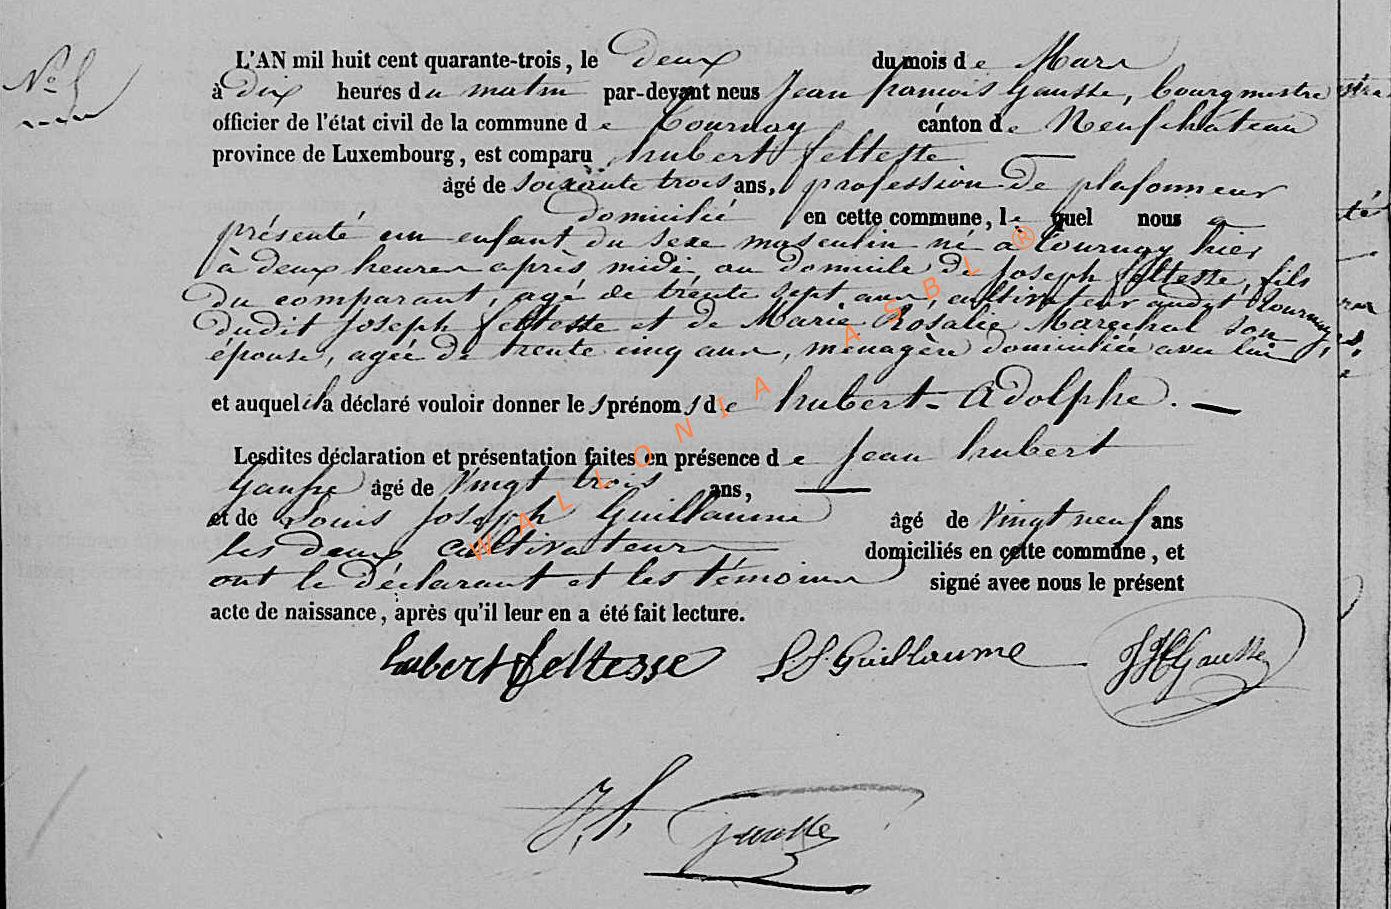 N° 5
L'AN mil huit cent quarante-trois, le deux du mois de Mars
à dix heures du matin par-devant nous Jean françois Gausse, bourgmestre
officier de l'état civil de la commune de Tournay canton de Neufchâteau
province de Luxembourg, est comparu hubert feltesse
âgé de soixante trois ans, profession de plafonneur
domicilié en cette commune, lequel nous a
présenté un enfant du sexe masculin né à tournay hier
à deux heures après midi, au domicile de Joseph feltesse, fils
du comparant, agé de trente sept ans, cultivateur audit Tournay,
dudit Joseph feltesse et de Marie Rosalie Maréchal son
épouse, agée de trente cinq ans, ménagère domiciliée avec lui
et auquel il a déclaré vouloir donner les prénoms de hubert-Adolphe.
Lesdites déclaration et présentation faites en présence de Jean hubert
Gausse âgé de vingt trois ans,
et de Louis Joseph Guillaume âgé de vingt neuf ans
les deux cultivateurs domiciliés en cette commune, et
ont le déclarant et les témoins signé avec nous le présent
acte de naissance, après qu'il leur en a été fait lecture.
hubert feltesse L J Guillaume JH Gausse
J. f. Gausse
WALLONIA ASBL ®